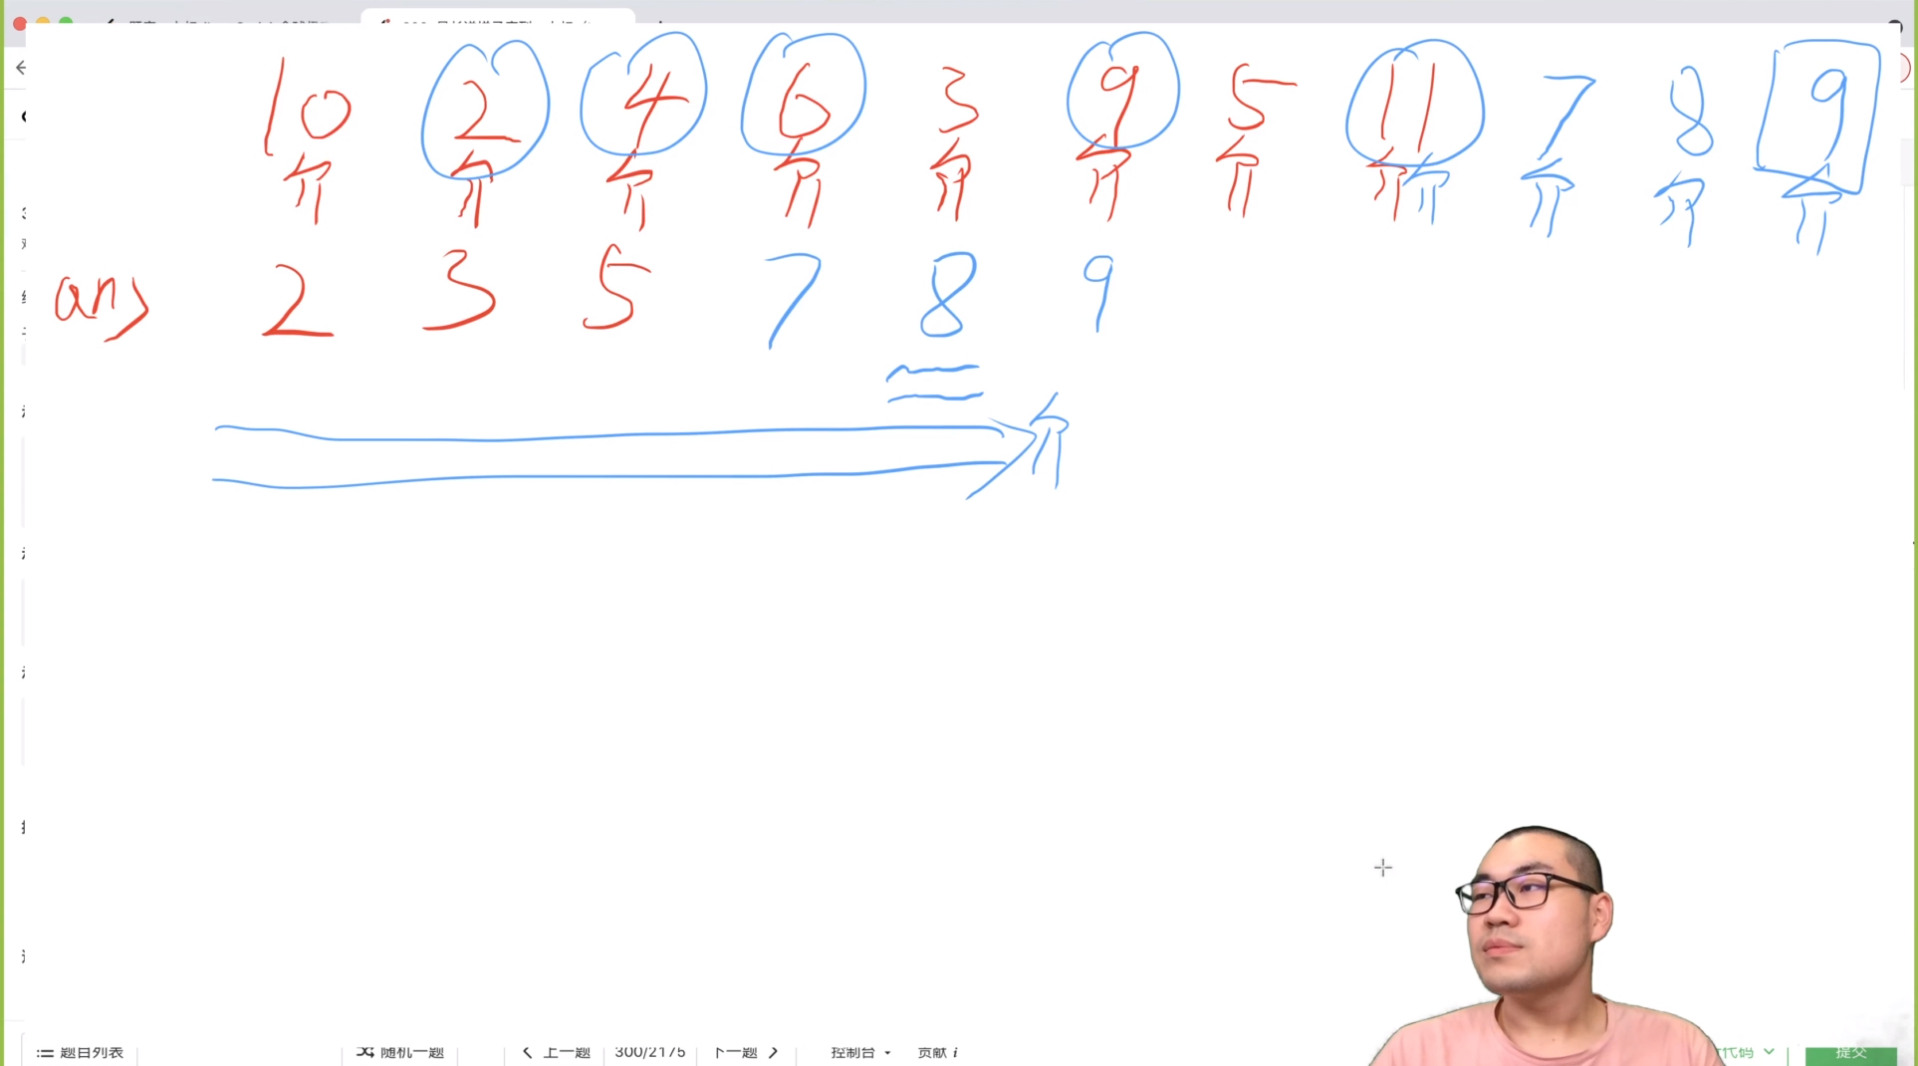 10 2 4 6 3 9 5 11 7 8 9
ans 2 3 5 7 8 9
题目列表 随机一题 上一题 300/2175 下一题 控制台 贡献 i 代码 提交